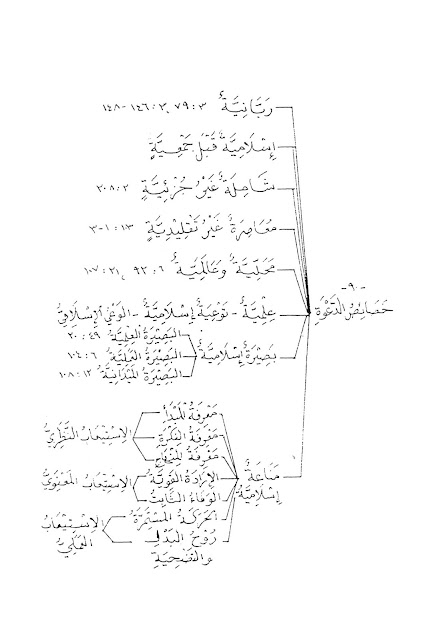 رَبَّانِيَّةٌ ٣ : ٧٩، ٣ : ١٤٦-١٤٨
إِسْلَامِيَّةٌ قَبْلَ جَمْعِيَّةٍ
شَامِلَةٌ غَيْرُ جُزْئِيَّةٍ ٢ : ٢٠٨
مُعَاصِرَةٌ غَيْرُ تَقْلِيدِيَّةٍ ١٣ : ١-٣
مَحَلِّيَّةٌ وَعَالَمِيَّةٌ ٦ : ٩٢، ٢١ : ١٠٧
-٩٠-
خَصَائِصُ الدَّعْوَةِ
عِلْمِيَّةٌ - نَوْعِيَّةٌ إِسْلَامِيَّةٌ - الوَعْيُ الإِسْلَامِيُّ
بَصِيْرَةٌ إِسْلَامِيَّةٌ
البَصِيْرَةُ العِلْمِيَّةُ ٤٩ : ٢٠
البَصِيْرَةُ ٦ : ١٠٤
البَصِيْرَةُ المَيْدَانِيَّةُ ١٢ : ١٠٨
مَنَاعَةٌ
إِسْلَامِيَّةٌ
مَعْرِفَةُ المَبْدَأِ
مَعْرِفَةُ الفِكْرَةِ
مَعْرِفَةُ المِنْهَاجِ
الاِسْتِيْعَابُ النَّظَرِيُّ
الإِرَادَةُ القَوِيَّةُ
الوَفَاءُ الثَّابِتُ
الاِسْتِيْعَابُ المَعْنَوِيُّ
الحَرَكَةُ المُسْتَمِرَّةُ
رُوْحُ البَذْلِ
وَالتَّضْحِيَةِ
الاِسْتِيْعَابُ
العَمَلِيُّ